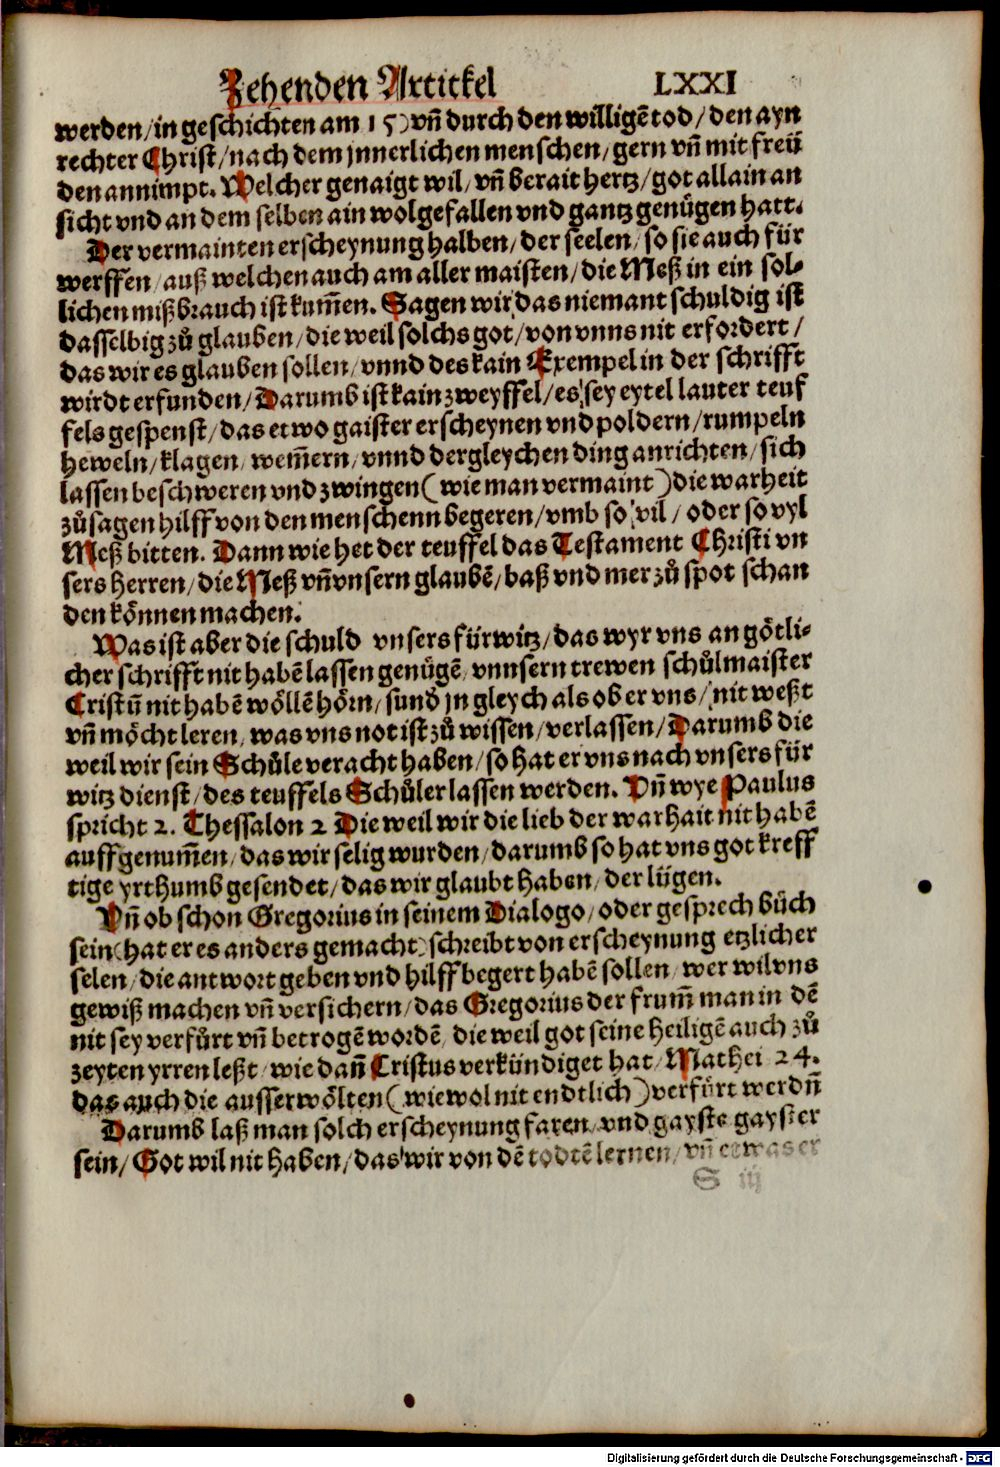 Zehenden Artickel LXXI
werden/in geschichten am 15) vñ durch den willigẽ tod/den ayn
rechter Christ/nach dem jnnerlichen menschen/gern vñ mit freü
den annimpt. Welcher genaigt wil/vñ berait hertz/got allain an
sicht vnd an dem selben ain wolgefallen vnd gantz genůgen hatt.
Der vermainten erscheynung halben/der seelen/so sie auch für
werffen/auß welchen auch am aller maisten/die Meß in ein sol-
lichen mißbrauch ist kum̃en. Sagen wir das niemant schuldig ist
dasselbig zů glauben/die weil solchs got/von vnns nit erfordert/
das wir es glauben sollen/vnnd des kain Exempel in der schrifft
wirdt erfunden/Darumb ist kain zweyffel/es sey eytel lauter teuf
fels gespenst/das etwo gaister erscheynen vnd poldern/rumpeln
heweln/klagen/wem̃ern/vnnd dergleychen ding anrichten/sich
lassen beschweren vnd zwingen (wie man vermaint) die warheit
zů sagen hilff von den menschenn begeren/vmb so vil/oder so vyl
Meß bitten. Dann wie het der teuffel das Testament Christi vn
sers Herren/die Meß vñ vnsern glaubẽ/baß vnd mer zů spot schan
den können machen.
Was ist aber die schuld vnsers fürwitz/das wyr vns an götli-
cher schrifft nit habẽ lassen genügẽ/vnnsern trewen schůlmaister
Cristũ nit habẽ wöllẽ hörn/sund jn gleych als ob er vns/nit weßt
vñ möcht leren/was vns not ist zů wissen/verlassen/Darumb die
weil wir sein Schůle veracht haben/so hat er vns nach vnsers für
witz dienst/des teuffels Schůler lassen werden. Vñ wye Paulus
spricht 2. Thessalon 2 Die weil wir die lieb der warhait nit habẽ
auffgenum̃en/das wir selig wurden/darumb so hat vns got kreff
tige yrthumb gesendet/das wir glaubt haben/der lügen.
Vñ ob schon Gregorius in seinem Dialogo/oder gesprech bůch
sein (hat er es anders gemacht) schreibt von erscheynung etzlicher
selen/die antwort geben vnd hilff begert habẽ sollen/wer wil vns
gewiß machen vñ versichern/das Gregorius der frum̃ man in dẽ
nit sey verfürt vñ betrogẽ wordẽ/die weil got seine Heiligẽ auch zů
zeyten yrren leßt/wie dañ Cristus verkündiget hat/Mathei 24.
das auch die ausserwölten (wiewol nit endtlich) verfürt werdñ
Darumb laß man solch erscheynung faren/vnd gayste gayster
sein/Got wil nit haben/das wir von dẽ todtẽ lernen/vñ etwas er
S iij
Digitalisierung gefördert durch die Deutsche Forschungsgemeinschaft - DFG